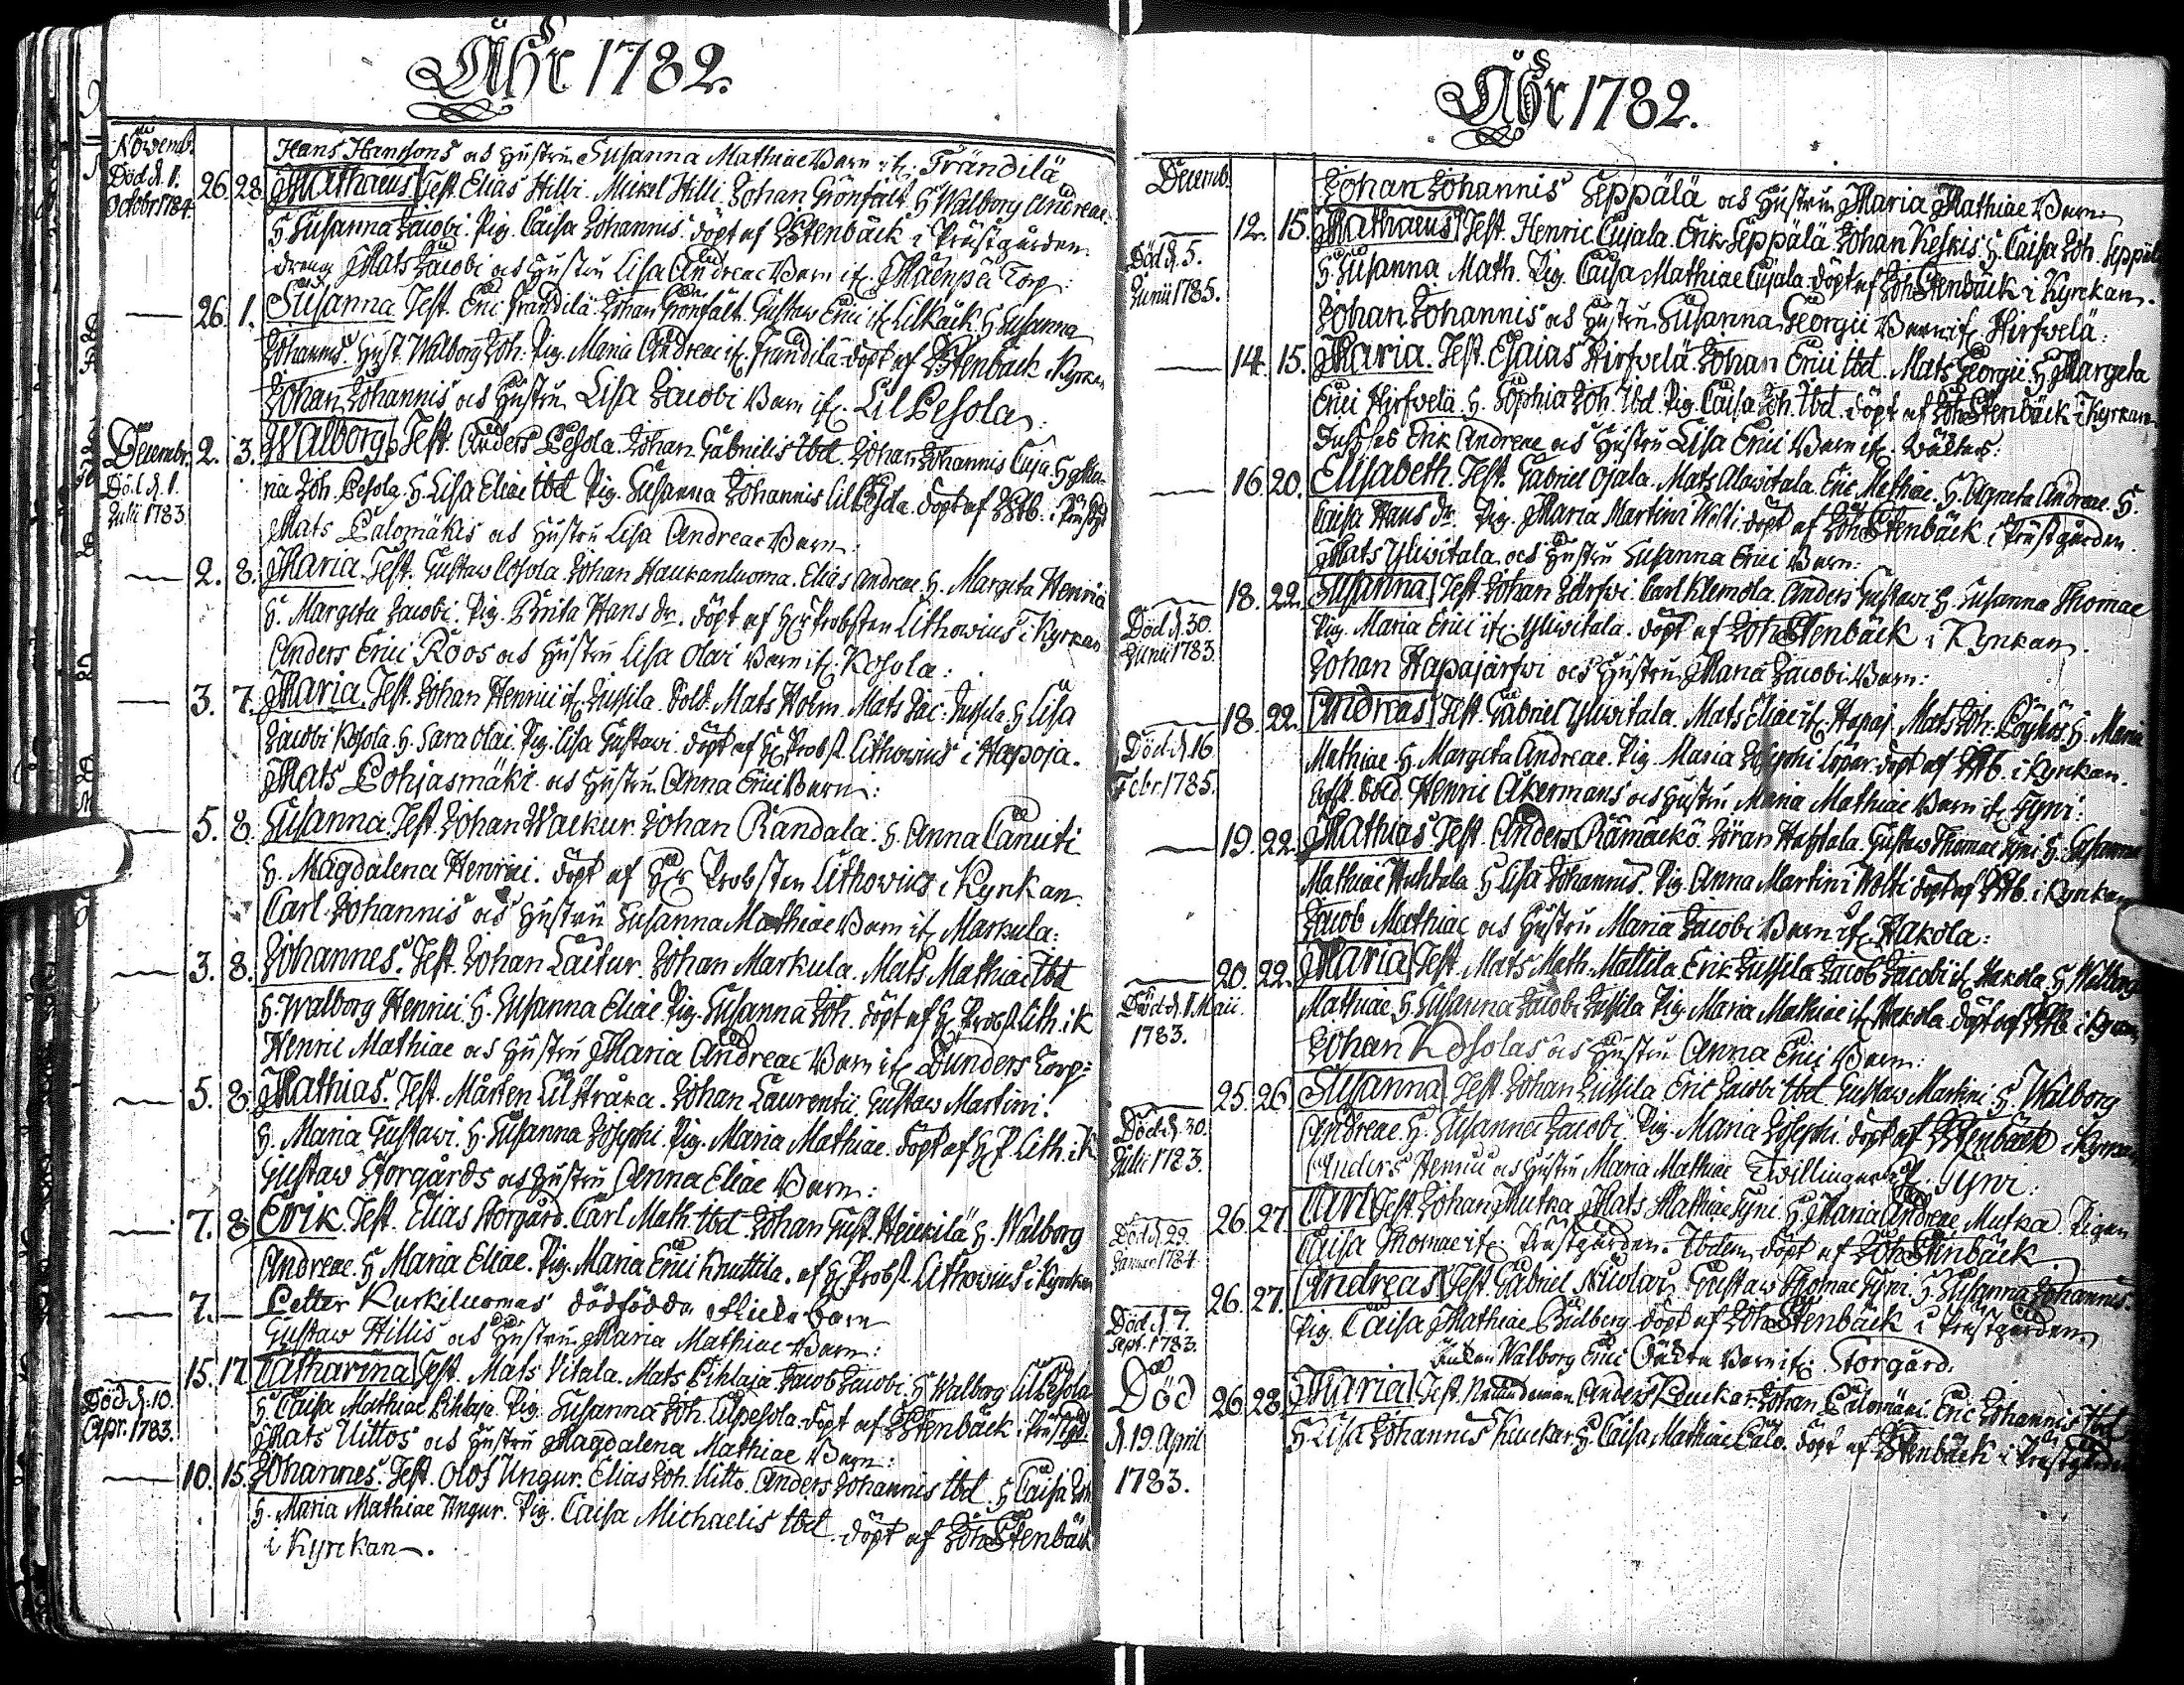 Åhr 1782.
Novemb. Hans Hanssons och Hustru Susanna Mathiae Barn if. Frändilä
Död d. 1. Octobr 1784. 26. 28. Mathaeus Test. Elias Hilli. Mickel Hilli. Johan Grönfält. H. Walborg Andreae.
H. Susanna Jacobi. Pig. Caisa Johannis. döpt af J Stenbäck i Prästgården.
dreng Mats Jacobi och Hustru Lisa Andreae Barn if. Mäenpä Torp:
— 26. 1. Susanna. Test. Erici Frändilä. Johan Grönfält. Gustaw Erici if. Lilkäck. H. Susanna
Johannis. Hust. Walborg Joh: Pig. Maria Andreae if. Frändilä döpt af J Stenbäck i Kyrkan
Johan Johannis och Hustru Lisa Jacobi Barn if. Lil Pesola:
Decembr. 2. 3. Walborg Test. Anders Pesola. Johan Gabrielis Ibd. Johan Johannis Cuja. H. Ma-
Död d. 1. Julii 1783. ria Joh. Pesola. H. Lisa Eliae Ibd Pig. Susanna Johannis Lil Pesola. döpt af J Stb. i Prästgd
Mats Palomäkis och Hustru Lisa Andreae Barn:
— 2. 8. Maria. Test. Gustaw Cosola. Johan Haukanluoma. Elias Andreae. H. Margeta Henrici
H. Margeta Jacobi. Pig. Brita Hans dr. döpt af H. Probsten Lithovius i Kyrkan
Anders Erici Roos och Hustru Lisa Olai Barn if. Kosola:
— 3. 7. Maria. Test. Johan Henrici if. Jussila. Sold. Mats Holm. Mats Jac: Jussila. H. Lisa
Jacobi Kosola. H. Sara Olai. Pig. Lisa Gustavi. döpt af H. Probst. Lithovius i Hapoja.
Mats Pohjasmäki och Hustru Anna Erici Barn:
— 5. 8. Susanna Test. Johan Wackur Johan Randala. H. Anna Canuti
H. Magdalena Henrici. döpt af H. Probsten Lithovius i Kyrkan.
Carl Johannis och Hustru Susanna Mathiae Barn if. Markula:
— 3. 8. Johannes. Test. Johan Laitur. Johan Markula. Mats Mathiae Ibd
H. Walborg Henrici H. Susanna Eliae Pig. Susanna Joh. döpt af H. Probst. Lith. i K
Henric Mathiae och Hustru Maria Andreae Barn if. Dunders Torp:
— 5. 8. Mathias. Test. Mårten Lilstråka. Johan Laurentii. Gustaw Martini.
H. Maria Gustavi. H. Susanna Josephi. Pig. Maria Mathiae. döpt af H. P. Lith. i K
Gustaw Storgårds och Hustru Anna Eliae Barn:
— 7. 8. Erik. Test. Elias Storgård. Carl Math. Ibd. Johan Gust. Heickilä H. Walborg
Andreae. H. Maria Eliae. Pig. Maria Erici Knuttila. af H. Probst. Lithovius i Kyrkan
— 7. — Petter Kurkiluomas dödfödda flicko barn
Gustaw Hillis och Hustru Maria Mathiae Barn:
15. 17. Catharina Test. Mats Vitala. Mats Pihlaja Jacob Jacobi. H. Walborg Lil Pesola
Död d. 10. Apr. 1783. H. Caisa Mathiae Pihlaja. Pig. Susanna Joh. Lilpesola. döpt af J Stenbäck i Prästgd.
Mats Uittos och Hustru Magdalena Mathiae Barn:
— 10. 15. Johannes. Test. Olof Ungur. Elias Joh. Uitto. Anders Johannis Ibd. H. Caisa Joh
H. Maria Mathiae Ungur. Pig. Caisa Michaelis Ibd. döpt af Joh Stenbäck
i Kyrckan.
Åhr 1782.
Decemb. Johan Johannis Seppälä och Hustru Maria Mathiae Barn
12. 15. Mathaeus Test. Henric Cujala. Erik Seppälä. Johan Keskis. H. Caisa Joh. Seppälä
Död d. 5. Junii 1785. H. Susanna Math. Pig. Caisa Mathiae Cujala. döpt af Joh Stenbäck i Kyrckan.
Johan Johannis och Hustru Susanna Georgii Barn if. Hirfvelä:
— 14. 15. Maria. Test. Esaias Hirfvelä. Johan Erici Ibd. Mats Georgii. H. Margeta
Erici Hirfvelä. H. Sophia Joh. Ibd. Pig. Caisa Joh. Ibd. döpt af Joh Stenbäck i Kyrkan.
Erik Andreae och Hustru Lisa Erici Barn if.
— 16. 20. Elisabeth. Test. Gabriel Ojala. Mats Alawitala. Eric Mathiae. H. Agneta Andreae. H.
Caisa Hans dr. Pig. Maria Martini Wolti. döpt af Joh Stenbäck i Prästgården.
Mats Yliwitala och Hustru Susanna Erici Barn:
18. 22. Susanna Test. Johan Järfwi. Carl Klemola. Anders Gustavi H. Susanna Thomae
Död d. 30. Junii 1783. Pig. Maria Erici if. Yliwitala. döpt af Joh Stenbäck i Kyrkan.
Johan Hapajärfwi och Hustru Maria Jacobi Barn:
18. 22. Andreas Test. Gabriel Yliwitala. Mats Eliae if. Hapaj. Mats Joh: Pöykis. H. Maria
Död d. 16. Febr. 1785. Mathiae H. Margeta Andreae. Pig. Maria Josephi Löpar. döpt af J Stb. i Kyrckan.
Sold. Henric Åkermans och Hustru Maria Mathiae Barn if. Tyni:
— 19. 22. Mathias Test. Anders Rämäckö. Jöran Huhtala. Gustaw Thomae Tyni H. Susanna
Mathiae Huhtala H. Lisa Johannis. Pig. Anna Martini Wolti döpt af J Stb. i Kyrkan
Jacob Mathiae och Hustru Maria Jacobi Barn if. Hakola:
20. 22. Maria Test. Mats Math. Mattila Erik Jussila Jacob Jacobi if. Hakola. H. Walborg
Död d. 1. Maii 1783. Mathiae H. Susanna Jacobi Jussila Pig. Maria Mathiae if. Hakola döpt af J Stb i Kyrkan
Johan Kosolas och Hustru Anna Erici Barn:
25. 26. Susanna Test. Johan Jussila Eric Jacobi Ibd. Gustaw Martini H. Walborg
Död d. 30. Julii 1783. Andreae. H. Susanna Jacobi. Pig. Maria Josephi. döpt af J Stenbäck i Kyrkan
Anders Henrici och Hustru Maria Mathiae Twillingar if. Tyni:
26. 27. Carl Test. Johan Mutka Mats Mathiae Tyni. H. Maria Andreae Mutka. Pigan
Död d. 29. Januar. 1784. Caisa Thomae if. Prästgården. Ibdem döpt af Joh Stenbäck
26. 27. Andreas Test. Gabriel Nicolai. Gustaw Thomae Tyni. H. Susanna Johannis.
Död d. 7. Sept. 1783. Pig. Caisa Mathiae Bulberg. döpt af Joh Stenbäck i Prästgården
Enkan Walborg Erici Oäckta Barn if. Storgård.
Död d. 19. April 1783. 26. 28. Maria Test. Nämdeman Anders Keuckar. Johan Palomäki. Eric Johannis Ibd
H. Lisa Johannis Keuckar H. Caisa Mathiae Palo. döpt af J Stenbäck i Prästgården